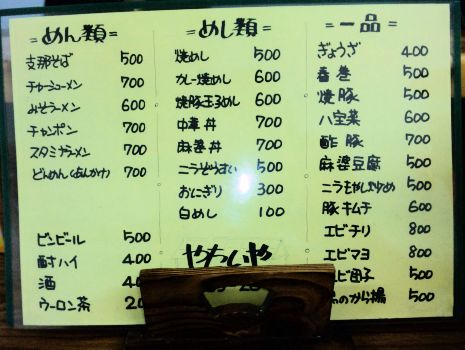 =めん類=
支那そば 500
チャーシューメン 700
みそラーメン 600
チャンポン 700
スタミナラーメン 700
どんめん(あんかけ) 700
ビンビール 500
酎ハイ 400
酒
ウーロン茶
=めし類=
焼めし 500
カレー焼めし 600
焼豚玉子めし 600
中華丼 700
麻婆丼 700
ニラぞうすい 500
おにぎり 300
白めし 100
やたいや
=一品=
ぎょうざ 400
春巻 500
焼豚 500
八宝菜 600
酢豚 700
麻婆豆腐 500
ニラもやし炒め 500
豚キムチ 600
エビチリ 800
エビマヨ 800
団子 500
のから揚 500